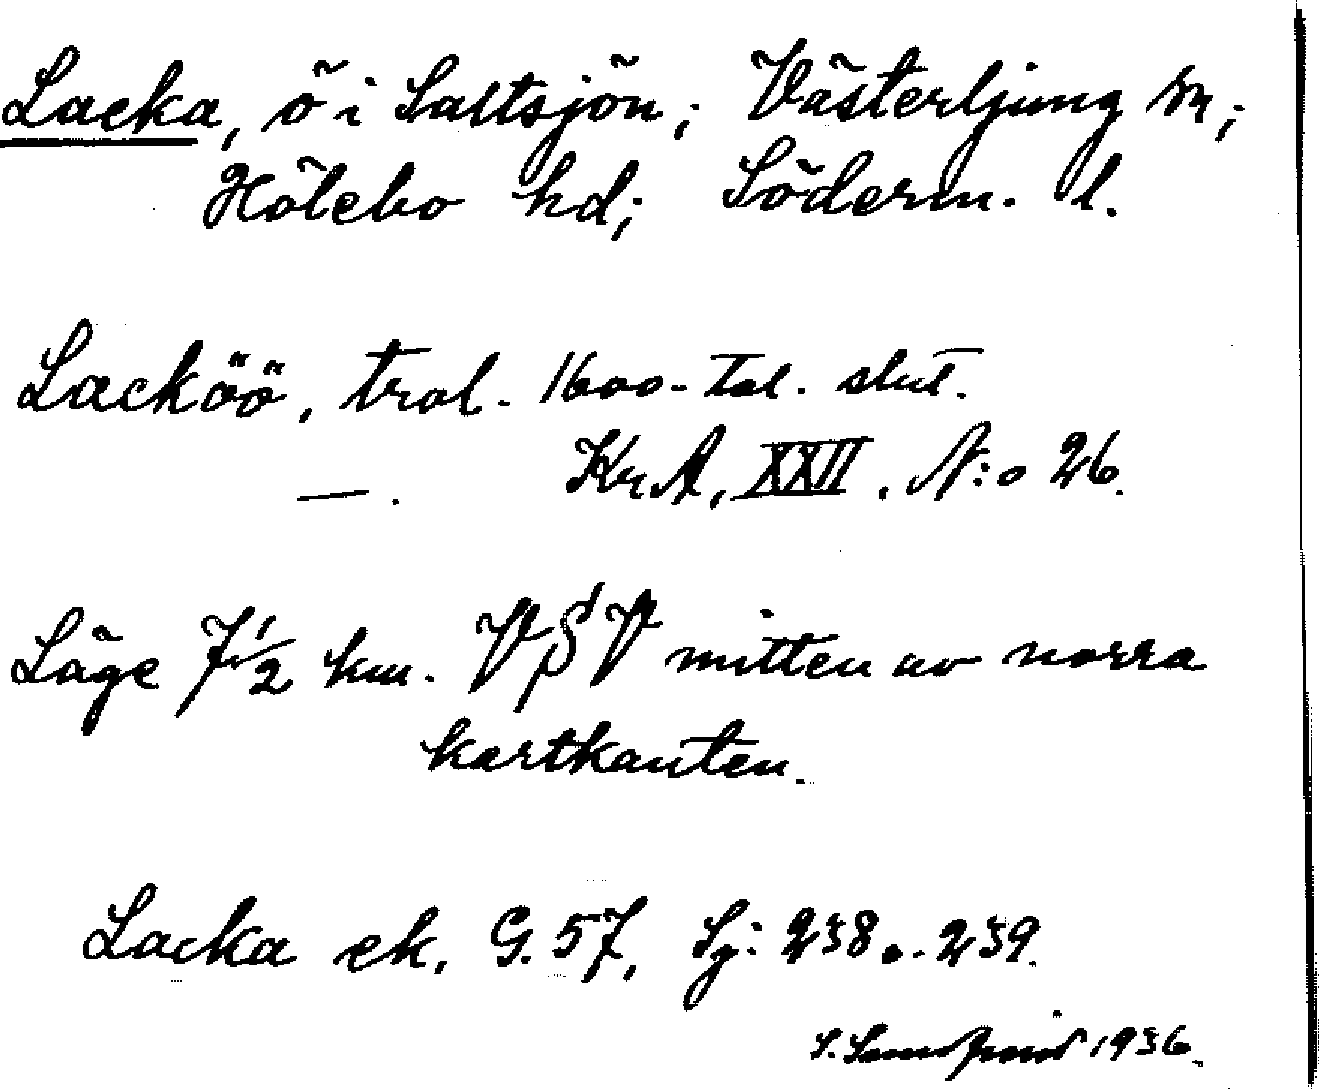 Lacka, ö i Saltsjön; Västerljung sn;
Hölebo hd; Söderm. l.
Lacköö, trol. 1600-tal. slut.
—. KrA, XXII. N:o 26.
Läge 7 1/2 km. VSV mitten av norra
kartkanten.
Lacka ek. G. 57, Sj: 238 o. 239.
S. 1936.